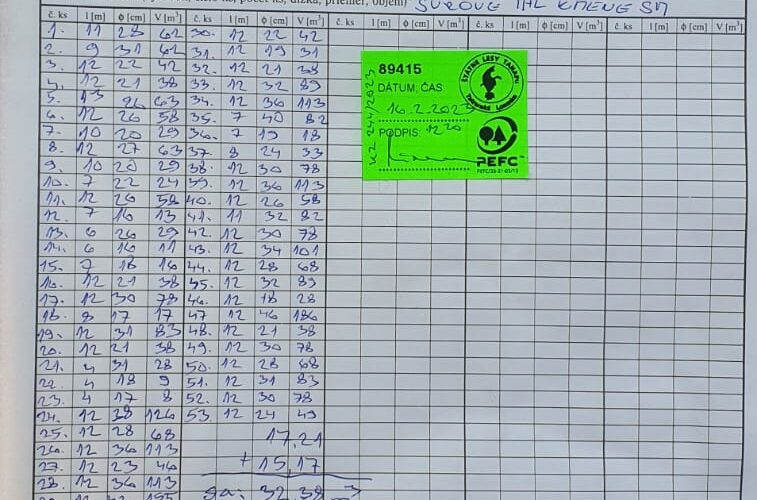 SUROVÉ IHL KMENE SM
č. ks l [m] ϕ [cm] V [m³] č. ks l [m] ϕ [cm] V [m³] č. ks l [m] ϕ [cm] V [m³] č. ks l [m] ϕ [cm] V [m³] č. ks l [m] ϕ [cm] V [m³]
1. 11 28 62 30. 12 22 42
2. 9 31 62 31. 12 19 31
3. 12 22 42 32. 12 21 38
4. 12 21 38 33. 12 32 89
5. 13 26 63 34. 12 36 113
6. 12 26 58 35. 7 40 82
7. 10 20 29 36. 7 19 18
8. 12 27 63 37. 8 24 33
9. 10 20 29 38. 12 30 78
10. 7 22 24 39. 12 36 113
11. 12 26 58 40. 12 26 58
12. 7 16 13 41. 11 32 82
13. 6 26 29 42. 12 30 78
14. 6 16 11 43. 12 34 101
15. 7 18 16 44. 12 28 68
16. 12 21 38 45. 12 32 89
17. 12 30 78 46. 12 18 28
18. 8 17 17 47 12 46 186
19. 12 31 83 48. 12 21 38
20. 12 21 38 49. 12 30 78
21. 4 31 28 50. 12 28 68
22. 4 18 9 51. 12 31 83
23. 4 17 8 52. 12 30 78
24. 12 38 126 53. 12 24 49
25. 12 28 68 17,21
26. 12 36 113
27. 12 23 46 + 15,17
28. 12 36 113 32,38
89415
DÁTUM, ČAS
16.2.2023
PODPIS: 12 20
244/2023
ŠTÁTNE LESY TANAPU
Tatranská Lomnica
PEFC